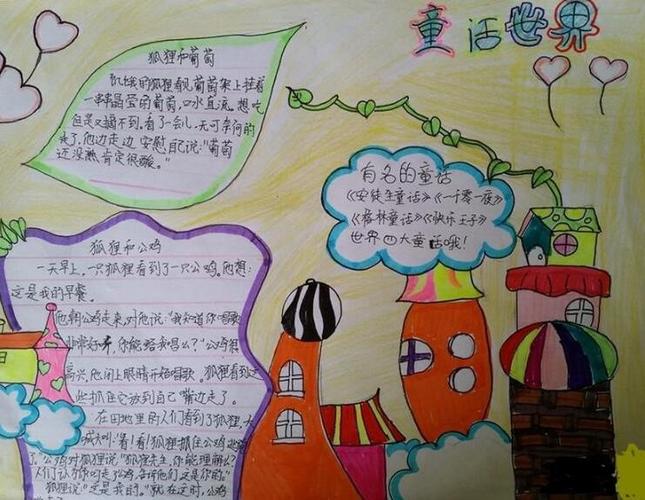 童话世界
狐狸和葡萄
饥饿的狐狸看见葡萄架上挂着
一串串晶莹的葡萄,口水直流。想吃
但是又摘不到。看了一会儿,无可奈何的
走了,他边走边安慰自己说:"葡萄
还没熟肯定很酸。"
有名的童话
《安徒生童话》《一千零一夜》
《格林童话》《快乐王子》
世界四大童话哦!
狐狸和公鸡
一天早上,一只狐狸看到了一只公鸡。他想:
这是我的早餐。
他朝公鸡走来,对他说:"我知道你唱歌
非常好听,你能给我唱么?"公鸡很
高兴,他闭上眼睛开始唱歌。狐狸看到这
些抓住它放到自己嘴边走了。
在田地里的人们看到了狐狸,大
喊大叫:"看!看!狐狸抓住公鸡
了。"公鸡对狐狸说:"狐狸先生,你能理解么?
人们认为你叼走了公鸡,告诉他们这是你的"
狐狸说:"这是我的。"就在这时,公鸡